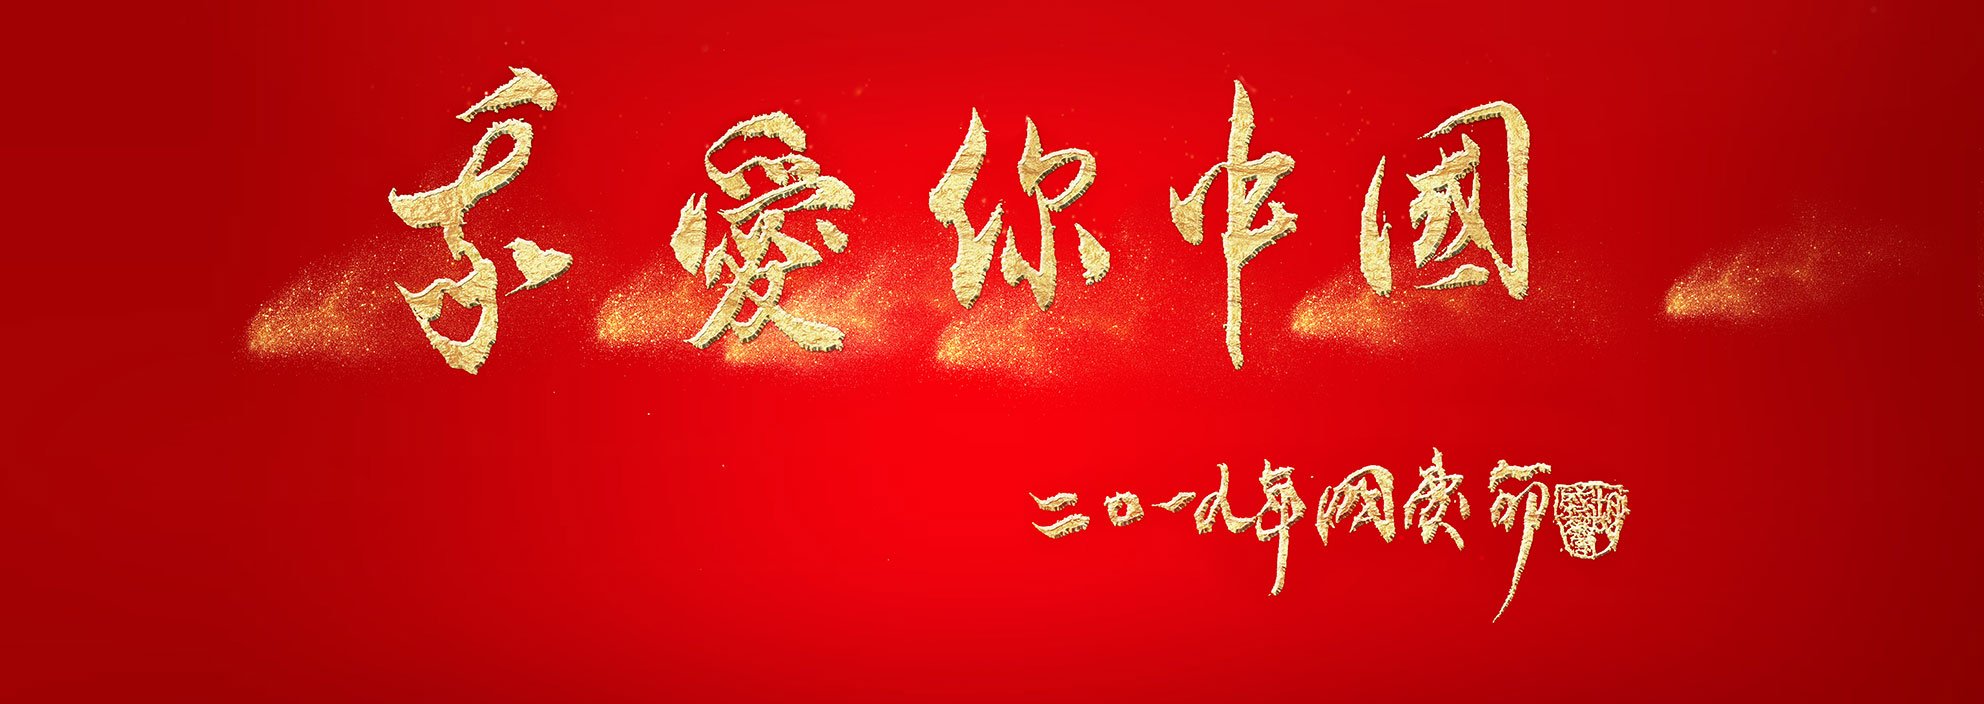 我愛你中國
二〇一九年國慶節